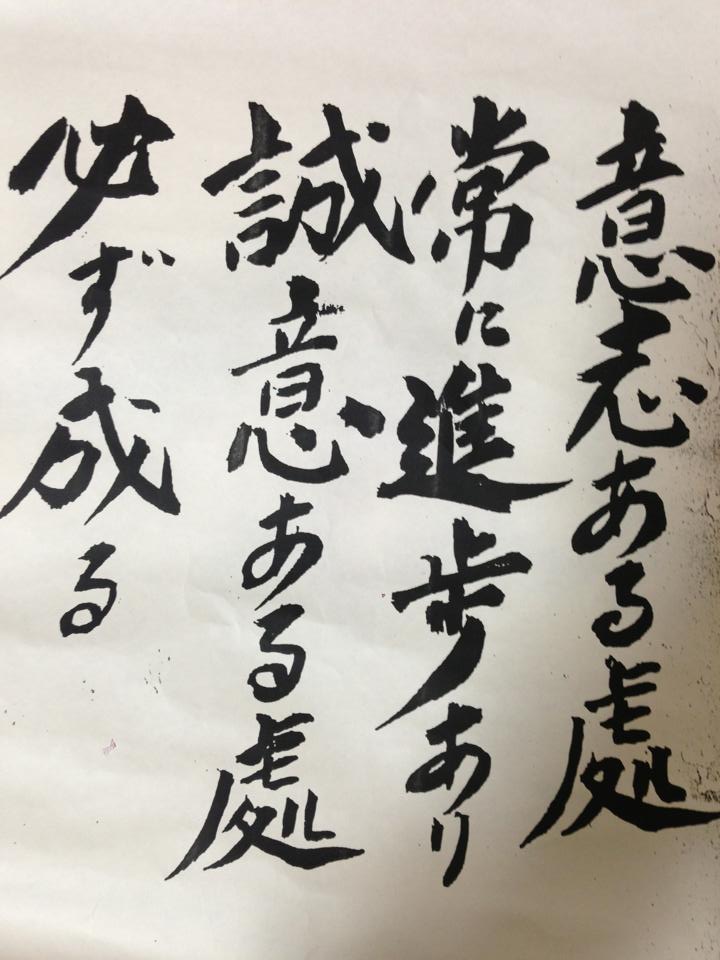 意志ある處
常に進歩あり
誠意ある處
必ず成る